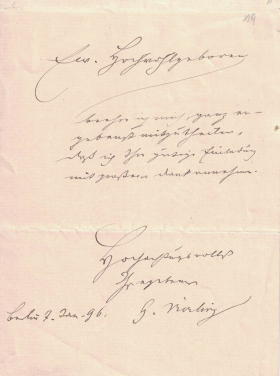 Ew. Hochwohlgeboren
beehre ich mich, ganz er-
gebenst mitzutheilen,
daß ich Ihre gütige Einladung
mit großem Dank annehme.
Hochachtungsvollst
Ihr ergebener
Berlin 7. Jan. 96.